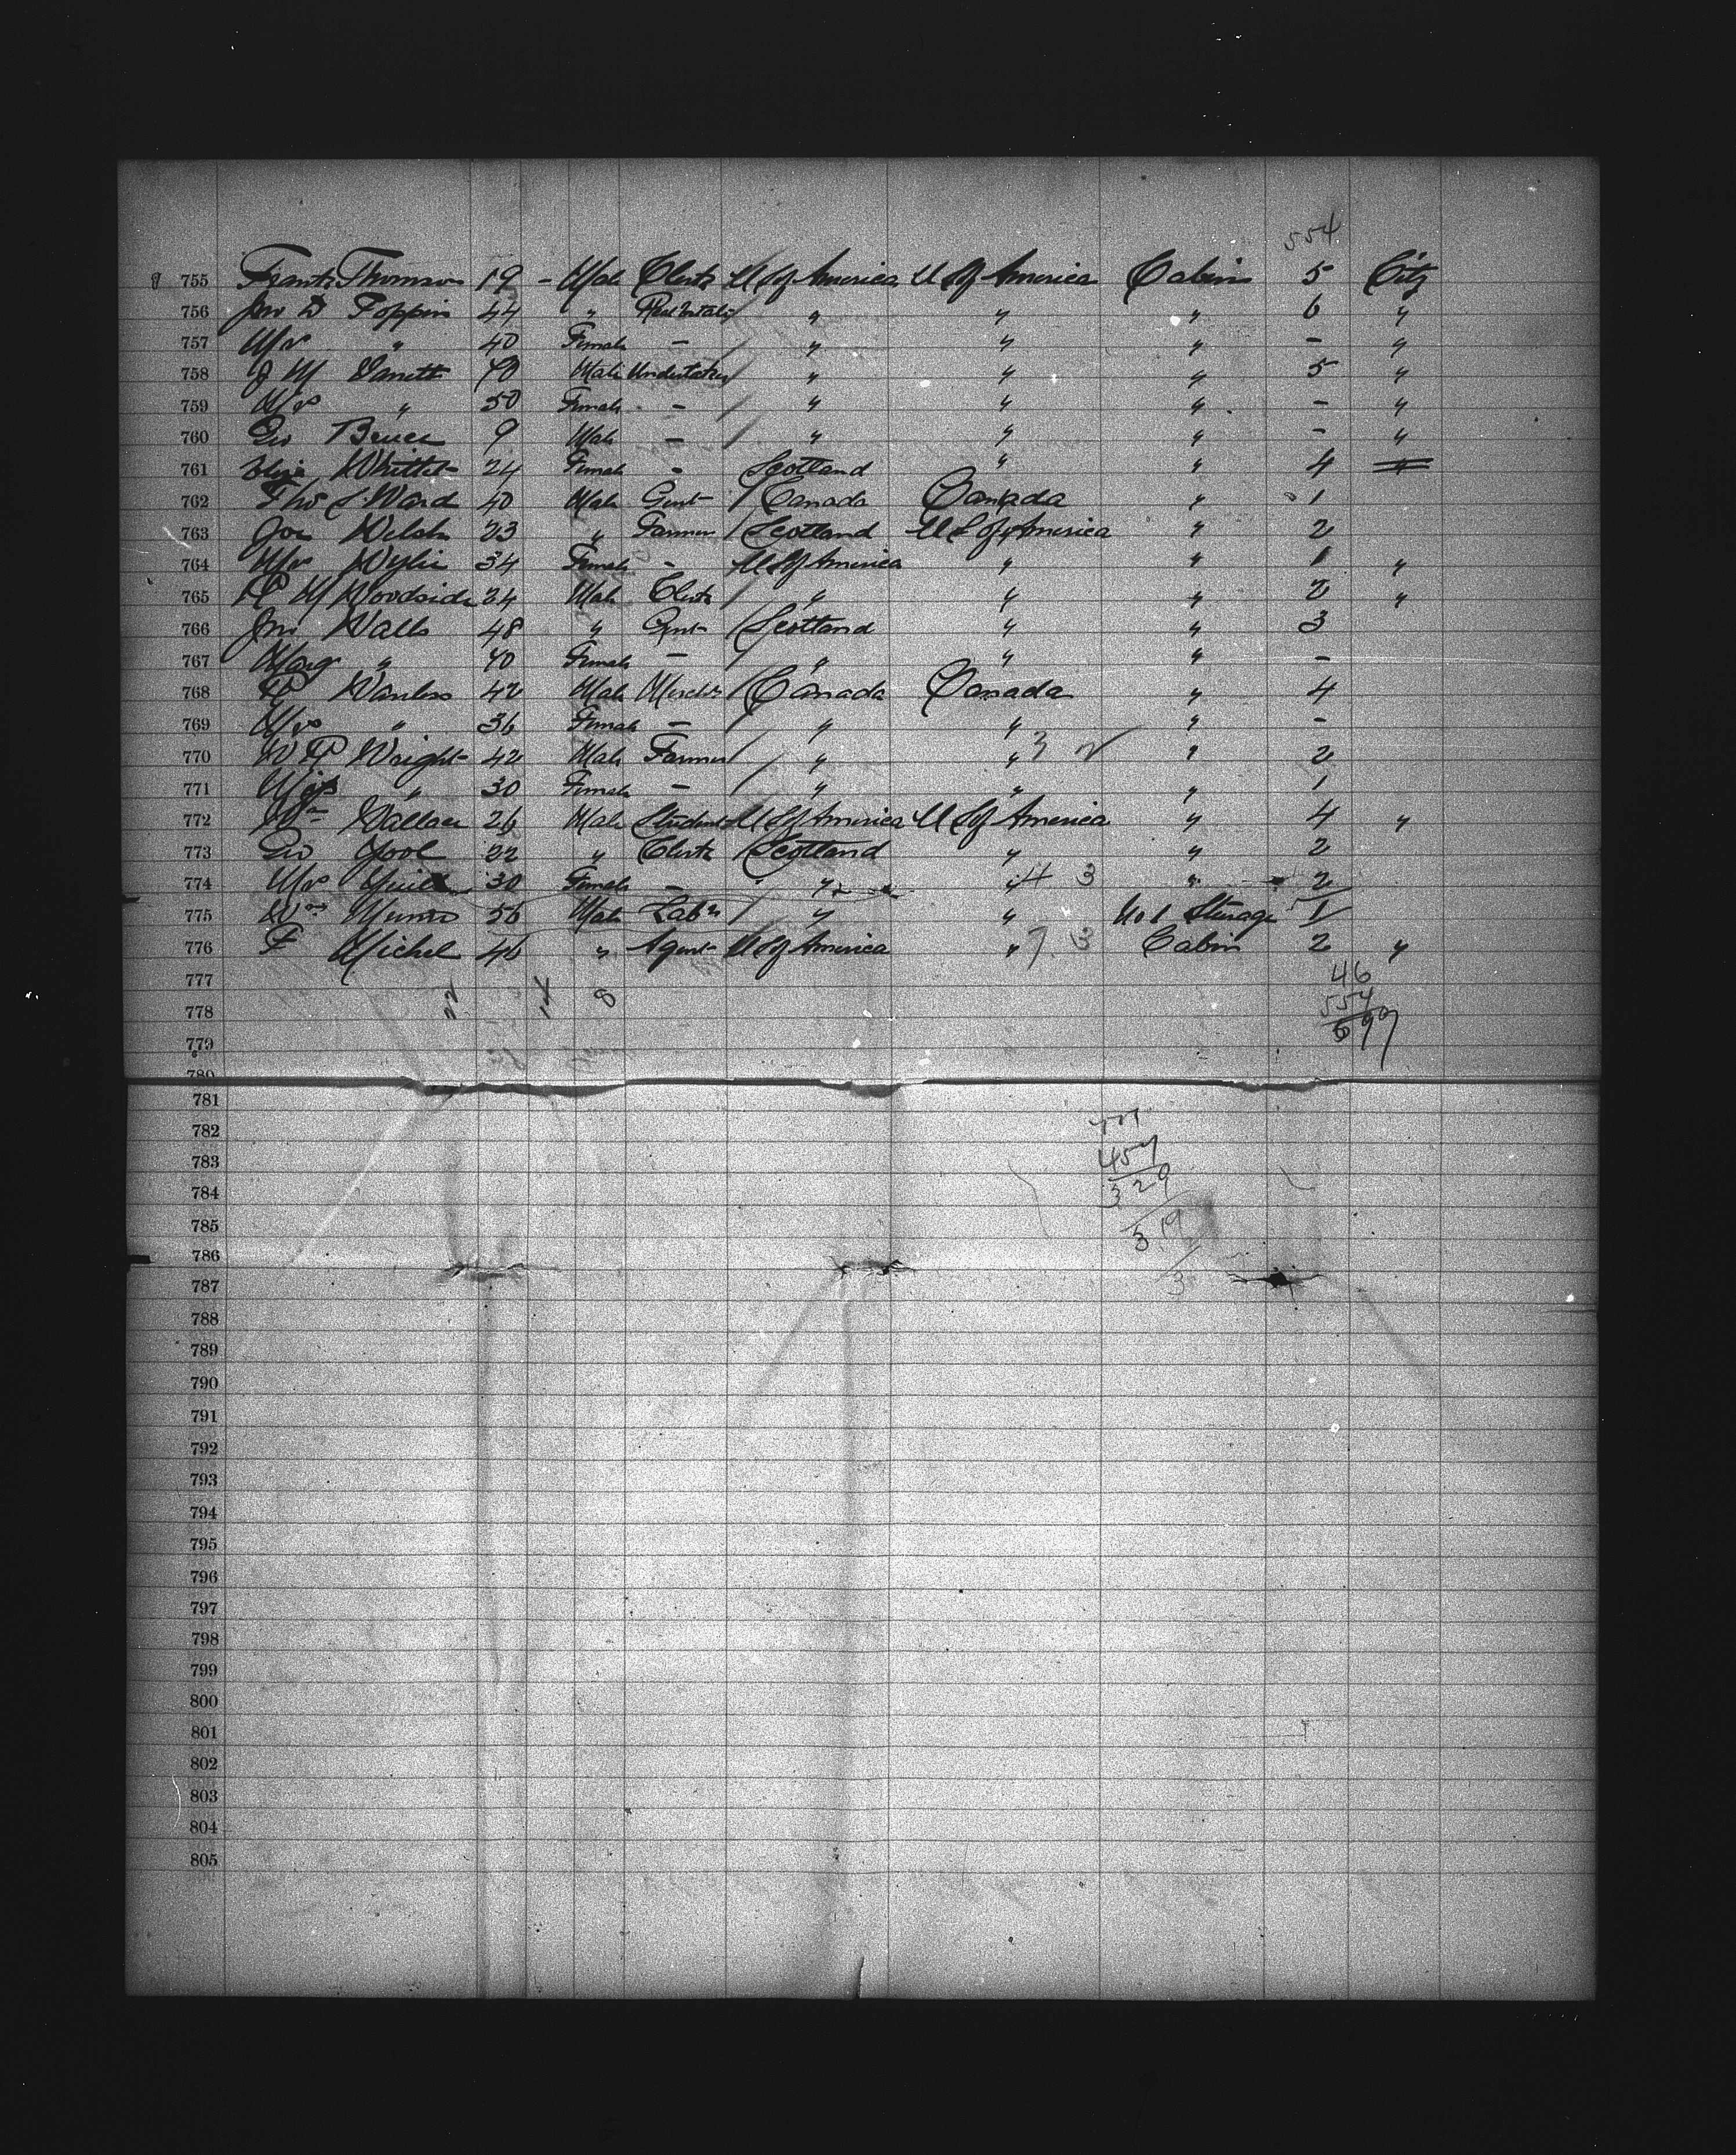 554
755 Frank Thomson 19 - Male Clerk U S of America U S of America Cabin 5 City
756 Jno D 44 " " " " 6 "
757 Mrs " 40 Female - " " " - "
758 J M 70 Male Undertaker " " " 5 "
759 Mrs " 50 Female - " " " - "
760 Geo Bruce 9 Male - " " " - "
761 Eliza Whittet 24 Female - Scotland " " 4
762 Thos S Ward 40 Male Gent Canada Canada " 1
763 Jos Welsh 23 " Farmer Scotland U S of America " 2
764 Mrs Wylie 34 Female - U S of America " " 1 "
765 R M Woodside 24 Male Clerk " " " 2 "
766 Jno Walls 48 " Gent Scotland " " 3
767 Marg " 40 Female - " " " -
768 R Wanless 42 Male Merch Canada Canada " 4
769 Mrs " 36 Female - " " " -
770 W R Wright 42 Male Farmer " " 3 " 2
771 " 30 Female - " " " 1
772 Wm Wallace 26 Male Student U S of America U S of America " 4 "
773 Geo Yool 22 " Clerk Scotland " " 2
774 Mrs Yuill 30 Female - " " 4 3 " 2
775 Wm Munro 56 Male Labr " " No 1 Steerage 1
776 F Michel 46 " Agent U S of America " 7 3 Cabin 2 "
777 46
778 22 14 8 554
599
779
780
781
782
783 457
784 329
785 319
786
787 3
788
789
790
791
792
793
794
795
796
797
798
799
800
801
802
803
804
805